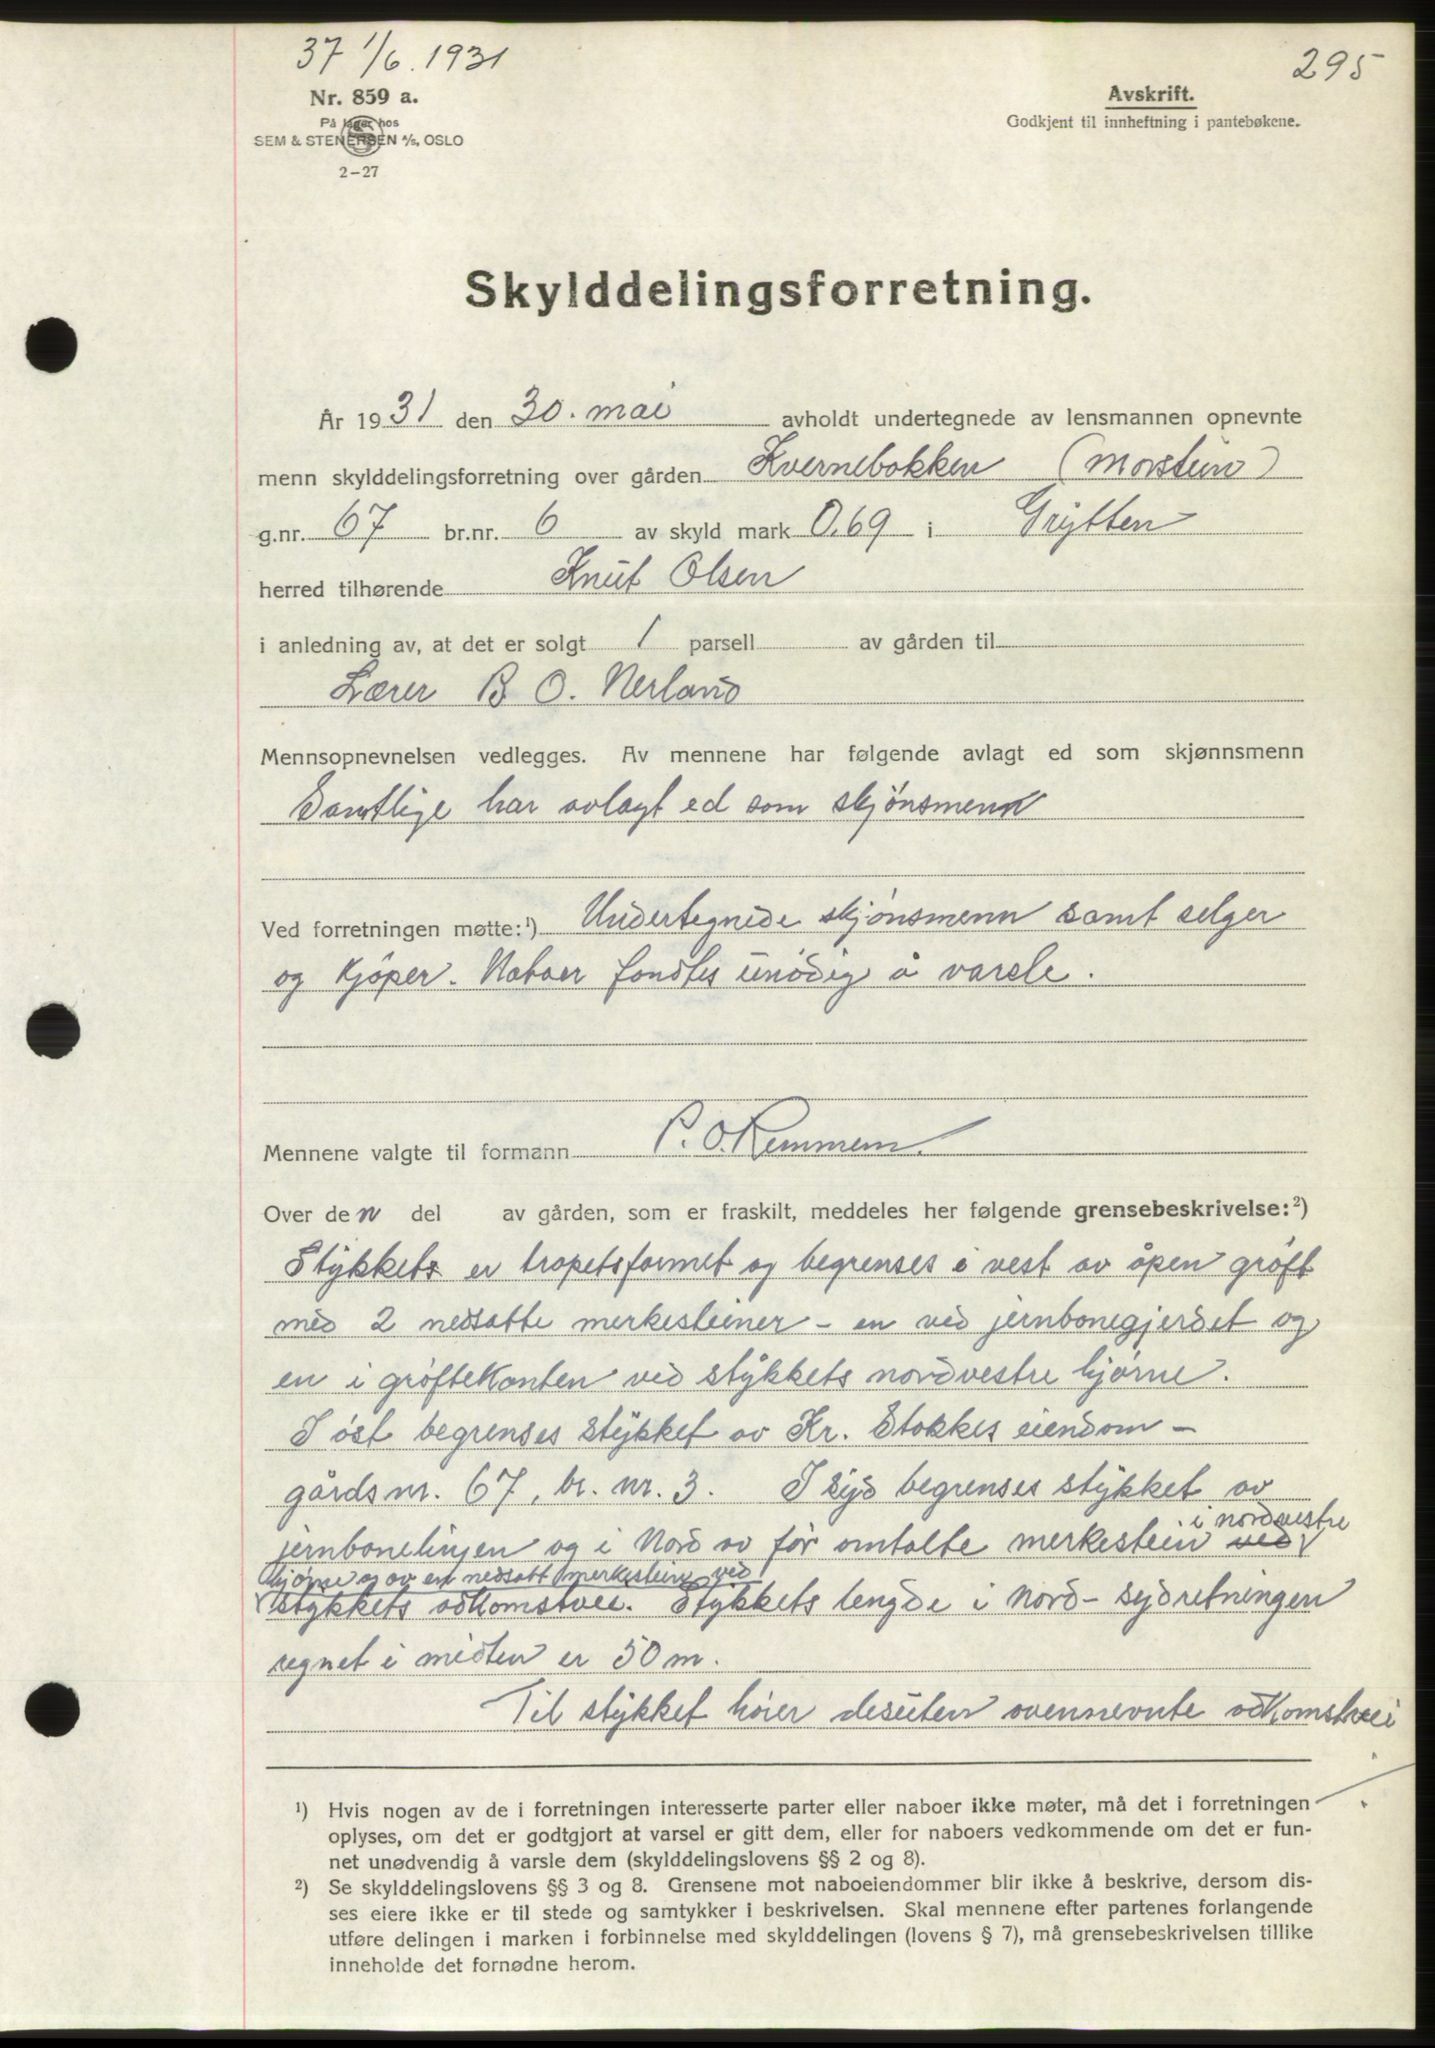 37 1/6. 1931
295
Nr. 859 a.
På lager hos
SEM & STENERSEN A/S, OSLO
2-27
Avskrift.
Godkjent til innheftning i pantebøkene.
Skylddelingsforretning.
År 1931 den 30. mai avholdt undertegnede av lensmannen opnevnte
menn skylddelingsforretning over gården Kvernebakken (Morstein)
g.nr. 67 br.nr. 6 av skyld mark 0.69 i Grytten
herred tilhørende Knut Olsen
i anledning av, at det er solgt 1 parsell av gården til
Lærer B O. Nerland
Mennsopnevnelsen vedlegges. Av mennene har følgende avlagt ed som skjønnsmenn
Samtlige har avlagt ed som skjönsmenn
Ved forretningen møtte:¹) Undertegnede skjönsmenn samt selger
og kjöper. Naboer fandtes unödig å varsle.
Mennene valgte til formann P. O. Remmem.
Over den del av gården, som er fraskilt, meddeles her følgende grensebeskrivelse:²)
Stykkets er trapetsformet og begrenses i vest av åpen gröft
med 2 nedsatte merkesteiner - en ved jernbanegjerdet og
en i gröftekanten ved stykkets nordvestre hjörne.
I öst begrenses stykket av Kr. Stokkes eiendom -
gårdsnr. 67, br. nr. 3. I syd begrenses stykket av
i nordvestre
jernbanelinjen og i Nord av för omtalte merkestein ved
hjörne og av en nedsatt merkestein ved
stykkets adkomstvei. Stykkets lengde i nord-sydretningen
regnet i midten er 50 m.
Til stykket höier desuten ovennevnte adkomstvei
¹) Hvis nogen av de i forretningen interesserte parter eller naboer ikke møter, må det i forretningen
oplyses, om det er godtgjort at varsel er gitt dem, eller for naboers vedkommende om det er fun-
net unødvendig å varsle dem (skylddelingslovens §§ 2 og 8).
²) Se skylddelingslovens §§ 3 og 8. Grensene mot naboeiendommer blir ikke å beskrive, dersom dis-
ses eiere ikke er til stede og samtykker i beskrivelsen. Skal mennene efter partenes forlangende
utføre delingen i marken i forbinnelse med skylddelingen (lovens § 7), må grensebeskrivelsen tillike
inneholde det fornødne herom.